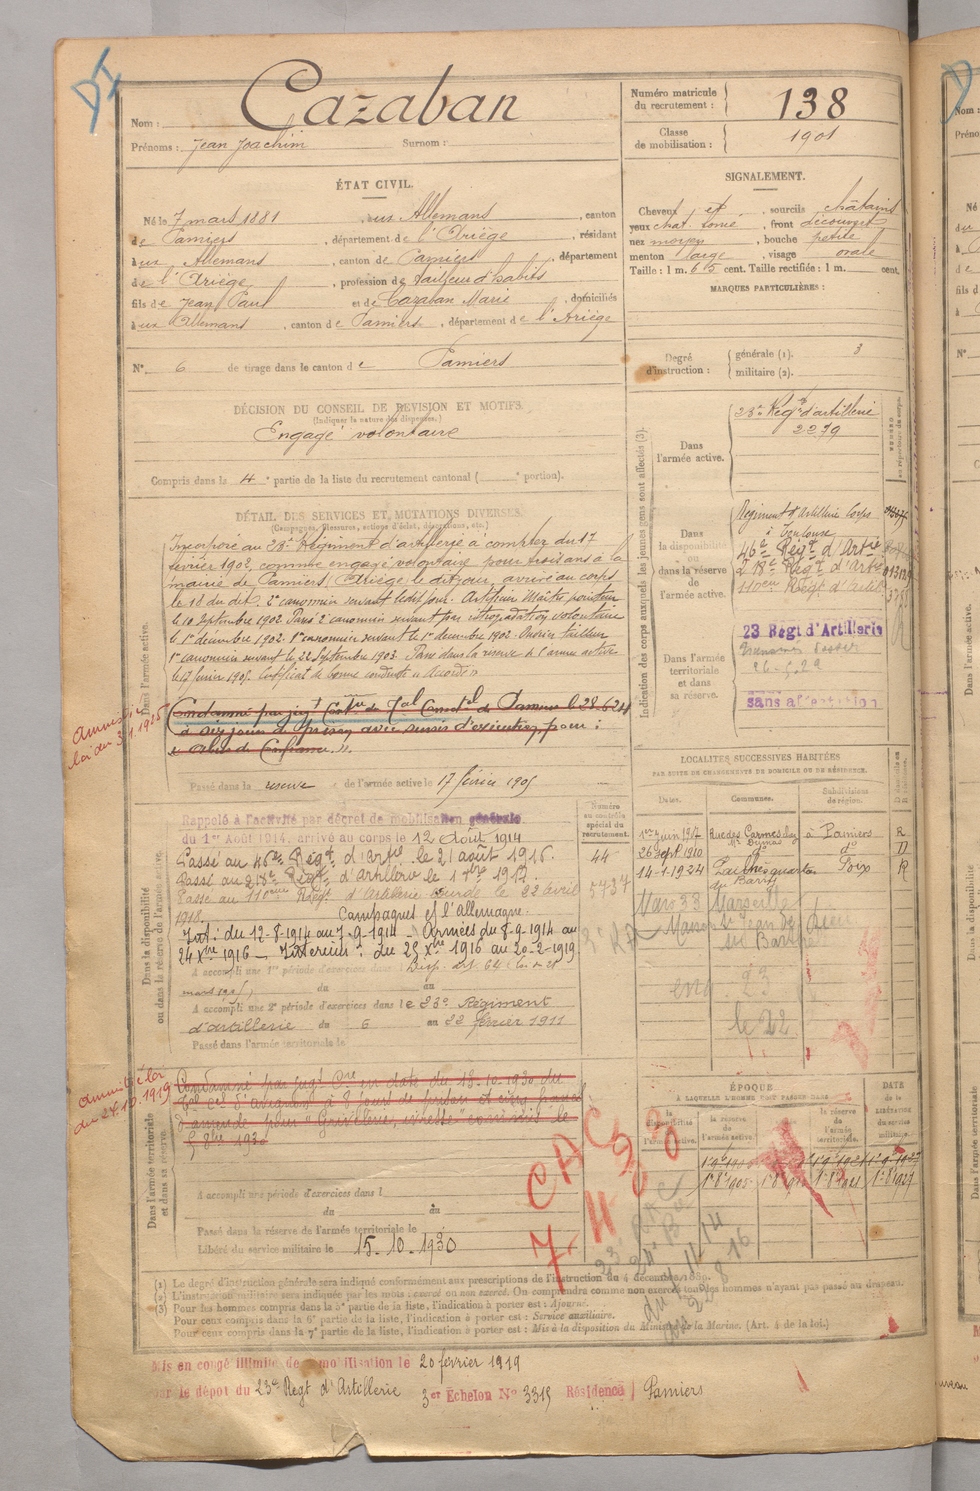 Nom : Cazaban
Prénoms : Jean Joachim Surnom :
Numéro matricule du recrutement : 138
Classe de mobilisation : 1901
ÉTAT CIVIL.
Né le 7 mars 1881, aux Allemans, canton
de Pamiers, département de l'Ariège, résidant
à aux Allemans, canton de Pamiers, département
de l'Ariège, profession de Tailleur d'habits
fils de Jean Paul et de Cazaban Marie, domiciliés
à aux Allemans, canton de Pamiers, département de l'Ariège
N° 6 de tirage dans le canton de Pamiers
SIGNALEMENT.
Cheveux et, sourcils châtains
yeux chat., front découvert
nez moyen, bouche petite
menton large, visage ovale
Taille : 1 m. 65 cent. Taille rectifiée : 1 m. cent.
MARQUES PARTICULIÈRES :
Degré d'instruction : générale (1). 3
militaire (2).
DÉCISION DU CONSEIL DE REVISION ET MOTIFS.
(Indiquer la nature des dispenses.)
Engagé volontaire
Compris dans la 4e partie de la liste du recrutement cantonal ( e portion).
DÉTAIL DES SERVICES ET MUTATIONS DIVERSES.
(Campagnes, blessures, actions d'éclat, décorations, etc.)
Dans l'armée active.
Incorporé au 23e Régiment d'artillerie à compter du 17
février 1902, comme engagé volontaire pour trois ans à la
mairie de Pamiers (Ariège) le dit jour, arrivé au corps
le 18 du dit. 2e canonnier servant le dit jour. Artificier
le 10 Septembre 1902. Passé 2e canonnier servant par rétrogradation volontaire
le 1er décembre 1902. 1er canonnier servant le 1er décembre 1902. Ouvrier tailleur
1er canonnier servant le 22 Septembre 1903. Passé dans la réserve de l'armée active
le 17 février 1905. Certificat de bonne conduite "Accordé"
amnistie
loi du 3.1.1925
Condamné par jugt Cre du Tal Correctel de Pamiers le 28-6-24
à dix jours de prison avec sursis d'exécution pour :
"abus de Confiance".
Passé dans la réserve de l'armée active le 17 février 1905
Indication des corps auxquels les jeunes gens sont affectés (3).
Dans l'armée active.
23e Régt d'artillerie
2279
Dans la disponibilité ou dans la réserve de l'armée active.
Régiment d'Artillerie Corps
à Toulouse
46e Régt d'Artie
218e Régt d'Artie
110eme Régt d'Artil
Dans l'armée territoriale et dans sa réserve.
23 Regt d'Artillerie
26-5-22
sans affectation
Dans la disponibilité ou dans la réserve de l'armée active.
Rappelé à l'activité par décret de mobilisation générale
du 1er Août 1914, arrivé au corps le 12 Août 1914
Passé au 46e Régt d'Artie le 21 août 1916.
Passé au 218e Régt d'Artillerie le 1er 1917.
Passé au 110eme Régt d'Artillerie Lourde le 22 avril
1918. Campagnes c/ l'Allemagne.
Int. : du 12-8-1914 au 7-9-1914 - Armées du 8-9-1914 au
24 Xbre 1916 - Intérieur : du 25 Xbre 1916 au 20-2-1919.
A accompli une 1re période d'exercices dans
du au
A accompli une 2e période d'exercices dans le 23e Régiment
d'artillerie du 6 au 22 février 1911
Passé dans l'armée territoriale le
Numéro au contrôle spécial du recrutement.
44
5737
LOCALITÉS SUCCESSIVES HABITÉES
PAR SUITE DE CHANGEMENTS DE DOMICILE OU DE RÉSIDENCE.
Dates. Communes. Subdivisions de région.
1er juin 1907 Rue des Carmes à Pamiers R
26 sept 1910 do do D
14-1-1934 Foix R
Mars 38 Marseille
Maison St Jean de Dieu
St Barthé
le 22
Dans l'armée territoriale et dans sa réserve.
amnistié loi
du 24.10.1919
Condamné par jugt Cre en date du 18-10-1930 du
Tal Cel d'Avignon à 8 jours de prison et cinq francs
d'amende pour "Grivèlerie, ivresse" commis le
5 8bre 1930
A accompli une période d'exercices dans l
du au
Passé dans la réserve de l'armée territoriale le
Libéré du service militaire le 15-10-1930
ÉPOQUE
À LAQUELLE L'HOMME DOIT PASSER DANS
la disponibilité de l'armée active. la réserve de l'armée active. la réserve de l'armée territoriale.
DATE de la LIBÉRATION du service militaire.
(1) Le degré d'instruction générale sera indiqué conformément aux prescriptions de l'instruction du 4 décembre 1889.
(2) L'instruction militaire sera indiquée par les mots : exercé ou non exercé. On comprendra comme non exercés tous les hommes n'ayant pas passé au drapeau.
(3) Pour les hommes compris dans la 5e partie de la liste, l'indication à porter est : Ajourné.
Pour ceux compris dans la 6e partie de la liste, l'indication à porter est : Service auxiliaire.
Pour ceux compris dans la 7e partie de la liste, l'indication à porter est : Mis à la disposition du Ministre de la Marine. (Art. 4 de la loi.)
Mis en congé illimité de démobilisation le 20 février 1919
par le dépôt du 23e Regt d'Artillerie 3er Échelon N° 3315 Résidence Pamiers